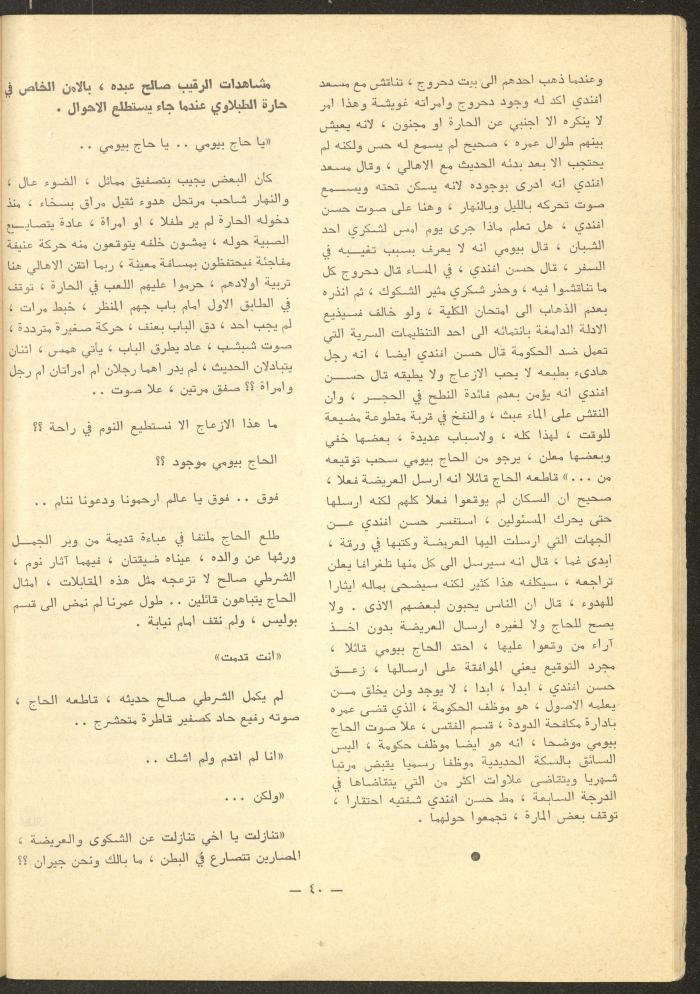 وعندما ذهب احدهم الى بيت دحروج ، تناقش مع مسعد
افندي اكد له وجود دحروج وامراته غويشة وهذا امر
لا ينكره الا اجنبي عن الحارة او مجنون ، لانه يعيش
بينهم طوال عمره ، صحيح لم يسمع له حس ولكنه لم
يحتجب الا بعد بدئه الحديث مع الاهالي ، وقال مسعد
افندي انه ادرى بوجوده لانه يسكن تحته ويسمع
صوت تحركه بالليل وبالنهار ، وهنا على صوت حسن
افندي ، هل تعلم ماذا جرى يوم امس لشكري احد
الشبان ، قال بيومي انه لا يعرف بسبب تغيبه في
السفر ، قال حسن افندي ، في المساء قال دحروج كل
ما تناقشوا فيه ، وحذر شكري مثير الشكوك ، ثم انذره
بعدم الذهاب الى امتحان الكلية ، ولو خالف فسيذيع
الادلة الدامغة بانتمائه الى احد التنظيمات السرية التي
تعمل ضد الحكومة قال حسن افندي ايضا ، انه رجل
هادىء بطبعه لا يحب الازعاج ولا يطيقه قال حسن
افندي انه يؤمن بعدم فائدة النطح في الحجر ، وان
النقش على الماء عبث ، والنفخ في قربة مقطوعة مضيعة
للوقت ، لهذا كله ، ولاسباب عديدة ، بعضها خفي
وبعضها معلن ، يرجو من الحاج بيومي سحب توقيعه
من ...» قاطعه الحاج قائلا انه ارسل العريضة فعلا ،
صحيح ان السكان لم يوقعوا فعلا كلهم لكنه ارسلها
حتى يحرك المسئولين ، استفسر حسن افندي عن
الجهات التي ارسلت اليها العريضة وكتبها في ورقة ،
ابدى غما ، قال انه سيرسل الى كل منها تلغرافا يعلن
تراجعه ، سيكلفه هذا كثير لكنه سيضحى بماله ايثارا
للهدوء ، قال ان الناس يحبون لبعضهم الاذى . ولا
يصح للحاج ولا لغيره ارسال العريضة بدون اخذ
آراء من وقعوا عليها ، احتد الحاج بيومي قائلا ،
مجرد التوقيع يعني الموافقة على ارسالها ، زعق
حسن افندي ، ابدا ، ابدا ، لا يوجد ولن يخلق من
يعلمه الاصول ، هو موظف الحكومة ، الذي قضى عمره
بادارة مكافحة الدودة ، قسم الفقس ، علا صوت الحاج
بيومي موضحا ، انه هو ايضا موظف حكومة ، اليس
السائق بالسكة الحديدية موظفا رسميا يقبض مرتبا
شهريا ويتقاضى علاوات اكثر من التي يتقاضاها في
الدرجة السابعة ، مط حسن افندي شفتيه احتقارا ،
توقف بعض المارة ، تجمعوا حولهما .
مشاهدات الرقيب صالح عبده ، بالامن الخاص في
حارة الطبلاوي عندما جاء يستطلع الاحوال .
«يا حاج بيومي .. يا حاج بيومي ..
كان البعض يجيب بتصفيق مماثل ، الضوء عال ،
والنهار شاحب مرتحل هدوء ثقيل مراق بسخاء ، منذ
دخوله الحارة لم ير طفلا ، او امراة ، عادة يتصايع
الصبية حوله ، يمشون خلفه يتوقعون منه حركة عنيفة
مفاجئة فيحتفظون بمسافة معينة ، ربما اتقن الاهالي هنا
تربية اولادهم ، حرموا عليهم اللعب في الحارة ، توقف
في الطابق الاول امام باب جهم المنظر ، خبط مرات ،
لم يجب احد ، دق الباب بعنف ، حركة صغيرة مترددة ،
صوت شبشب ، عاد يطرق الباب ، ياتي همس ، اثنان
يتبادلان الحديث ، لم يدر اهما رجلان ام امراتان ام رجل
وامراة ؟؟ صفق مرتين ، علا صوت ..
ما هذا الازعاج الا نستطيع النوم في راحة ؟؟
الحاج بيومي موجود ؟؟
فوق .. فوق يا عالم ارحمونا ودعونا ننام ..
طلع الحاج ملتفا في عباءة قديمة من وبر الجمل
ورثها عن والده ، عيناه ضيقتان ، فيهما آثار نوم ،
الشرطي صالح لا تزعجه مثل هذه المقابلات ، امثال
الحاج يتباهون قائلين .. طول عمرنا لم نمض الى قسم
بوليس ، ولم نقف امام نيابة .
«انت قدمت»
لم يكمل الشرطي صالح حديثه ، قاطعه الحاج ،
صوته رفيع حاد كصفير قاطرة متحشرج ..
«انا لم اقدم ولم اشك ..
«ولكن ...
«تنازلت يا اخي تنازلت عن الشكوى والعريضة ،
المصارين تتصارع في البطن ، ما بالك ونحن جيران ؟؟
— ٤٠ —